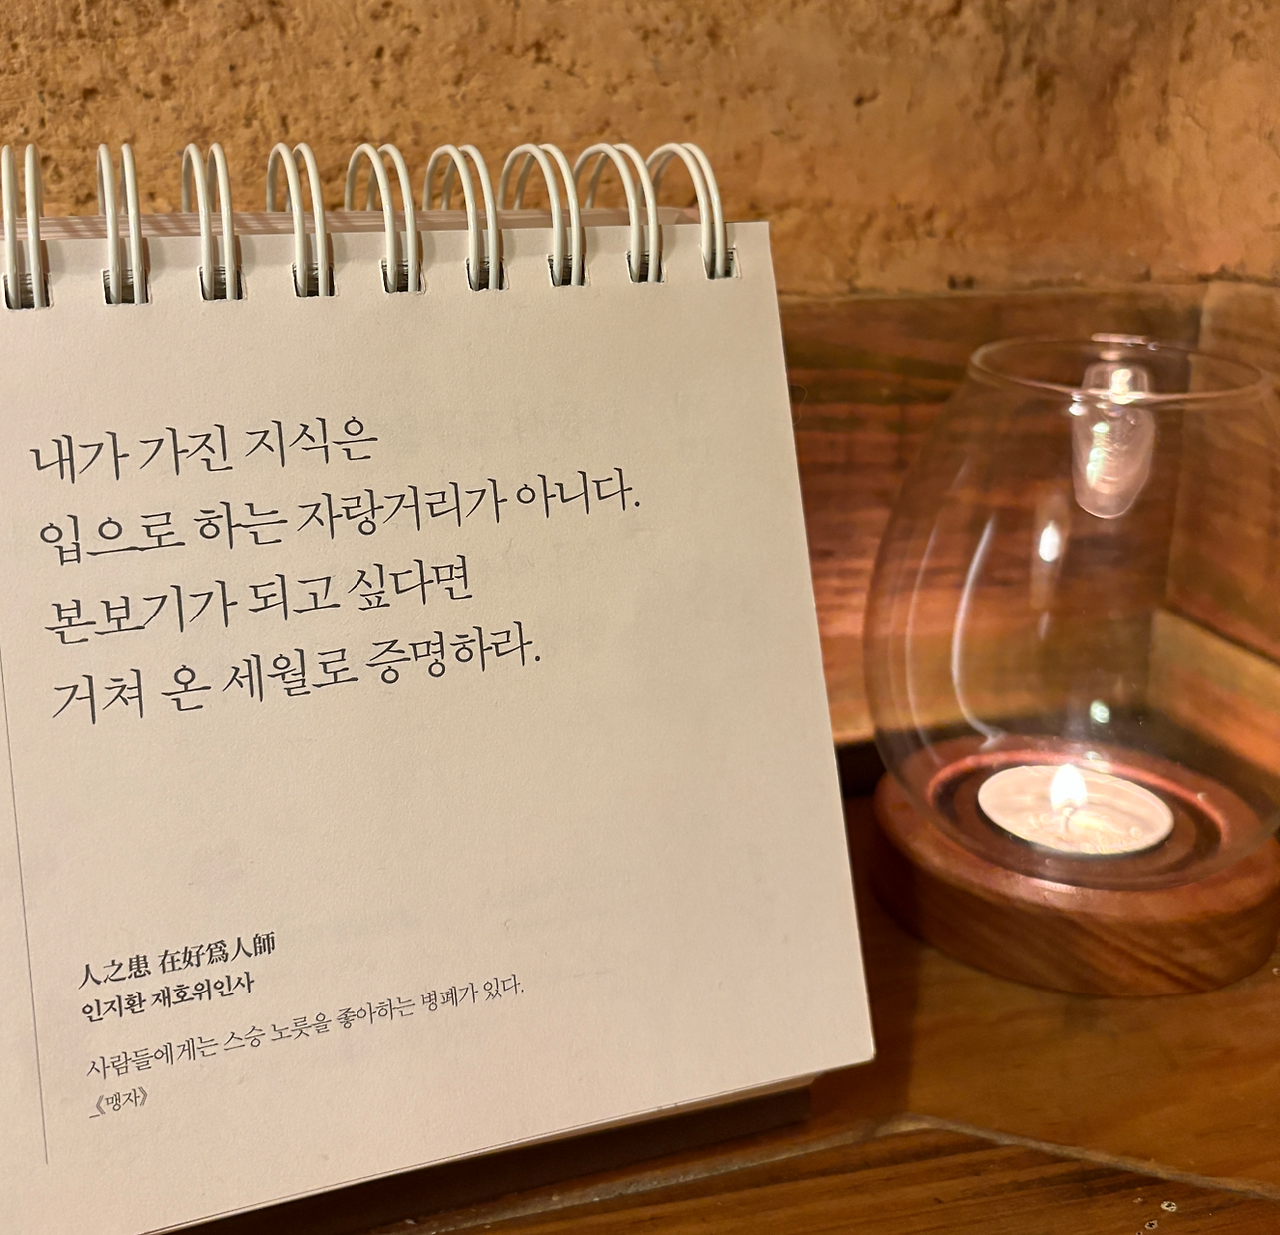 내가 가진 지식은
입으로 하는 자랑거리가 아니다.
본보기가 되고 싶다면
거쳐 온 세월로 증명하라.
人之患 在好爲人師
인지환 재호위인사
사람들에게는 스승 노릇을 좋아하는 병폐가 있다.
_《맹자》